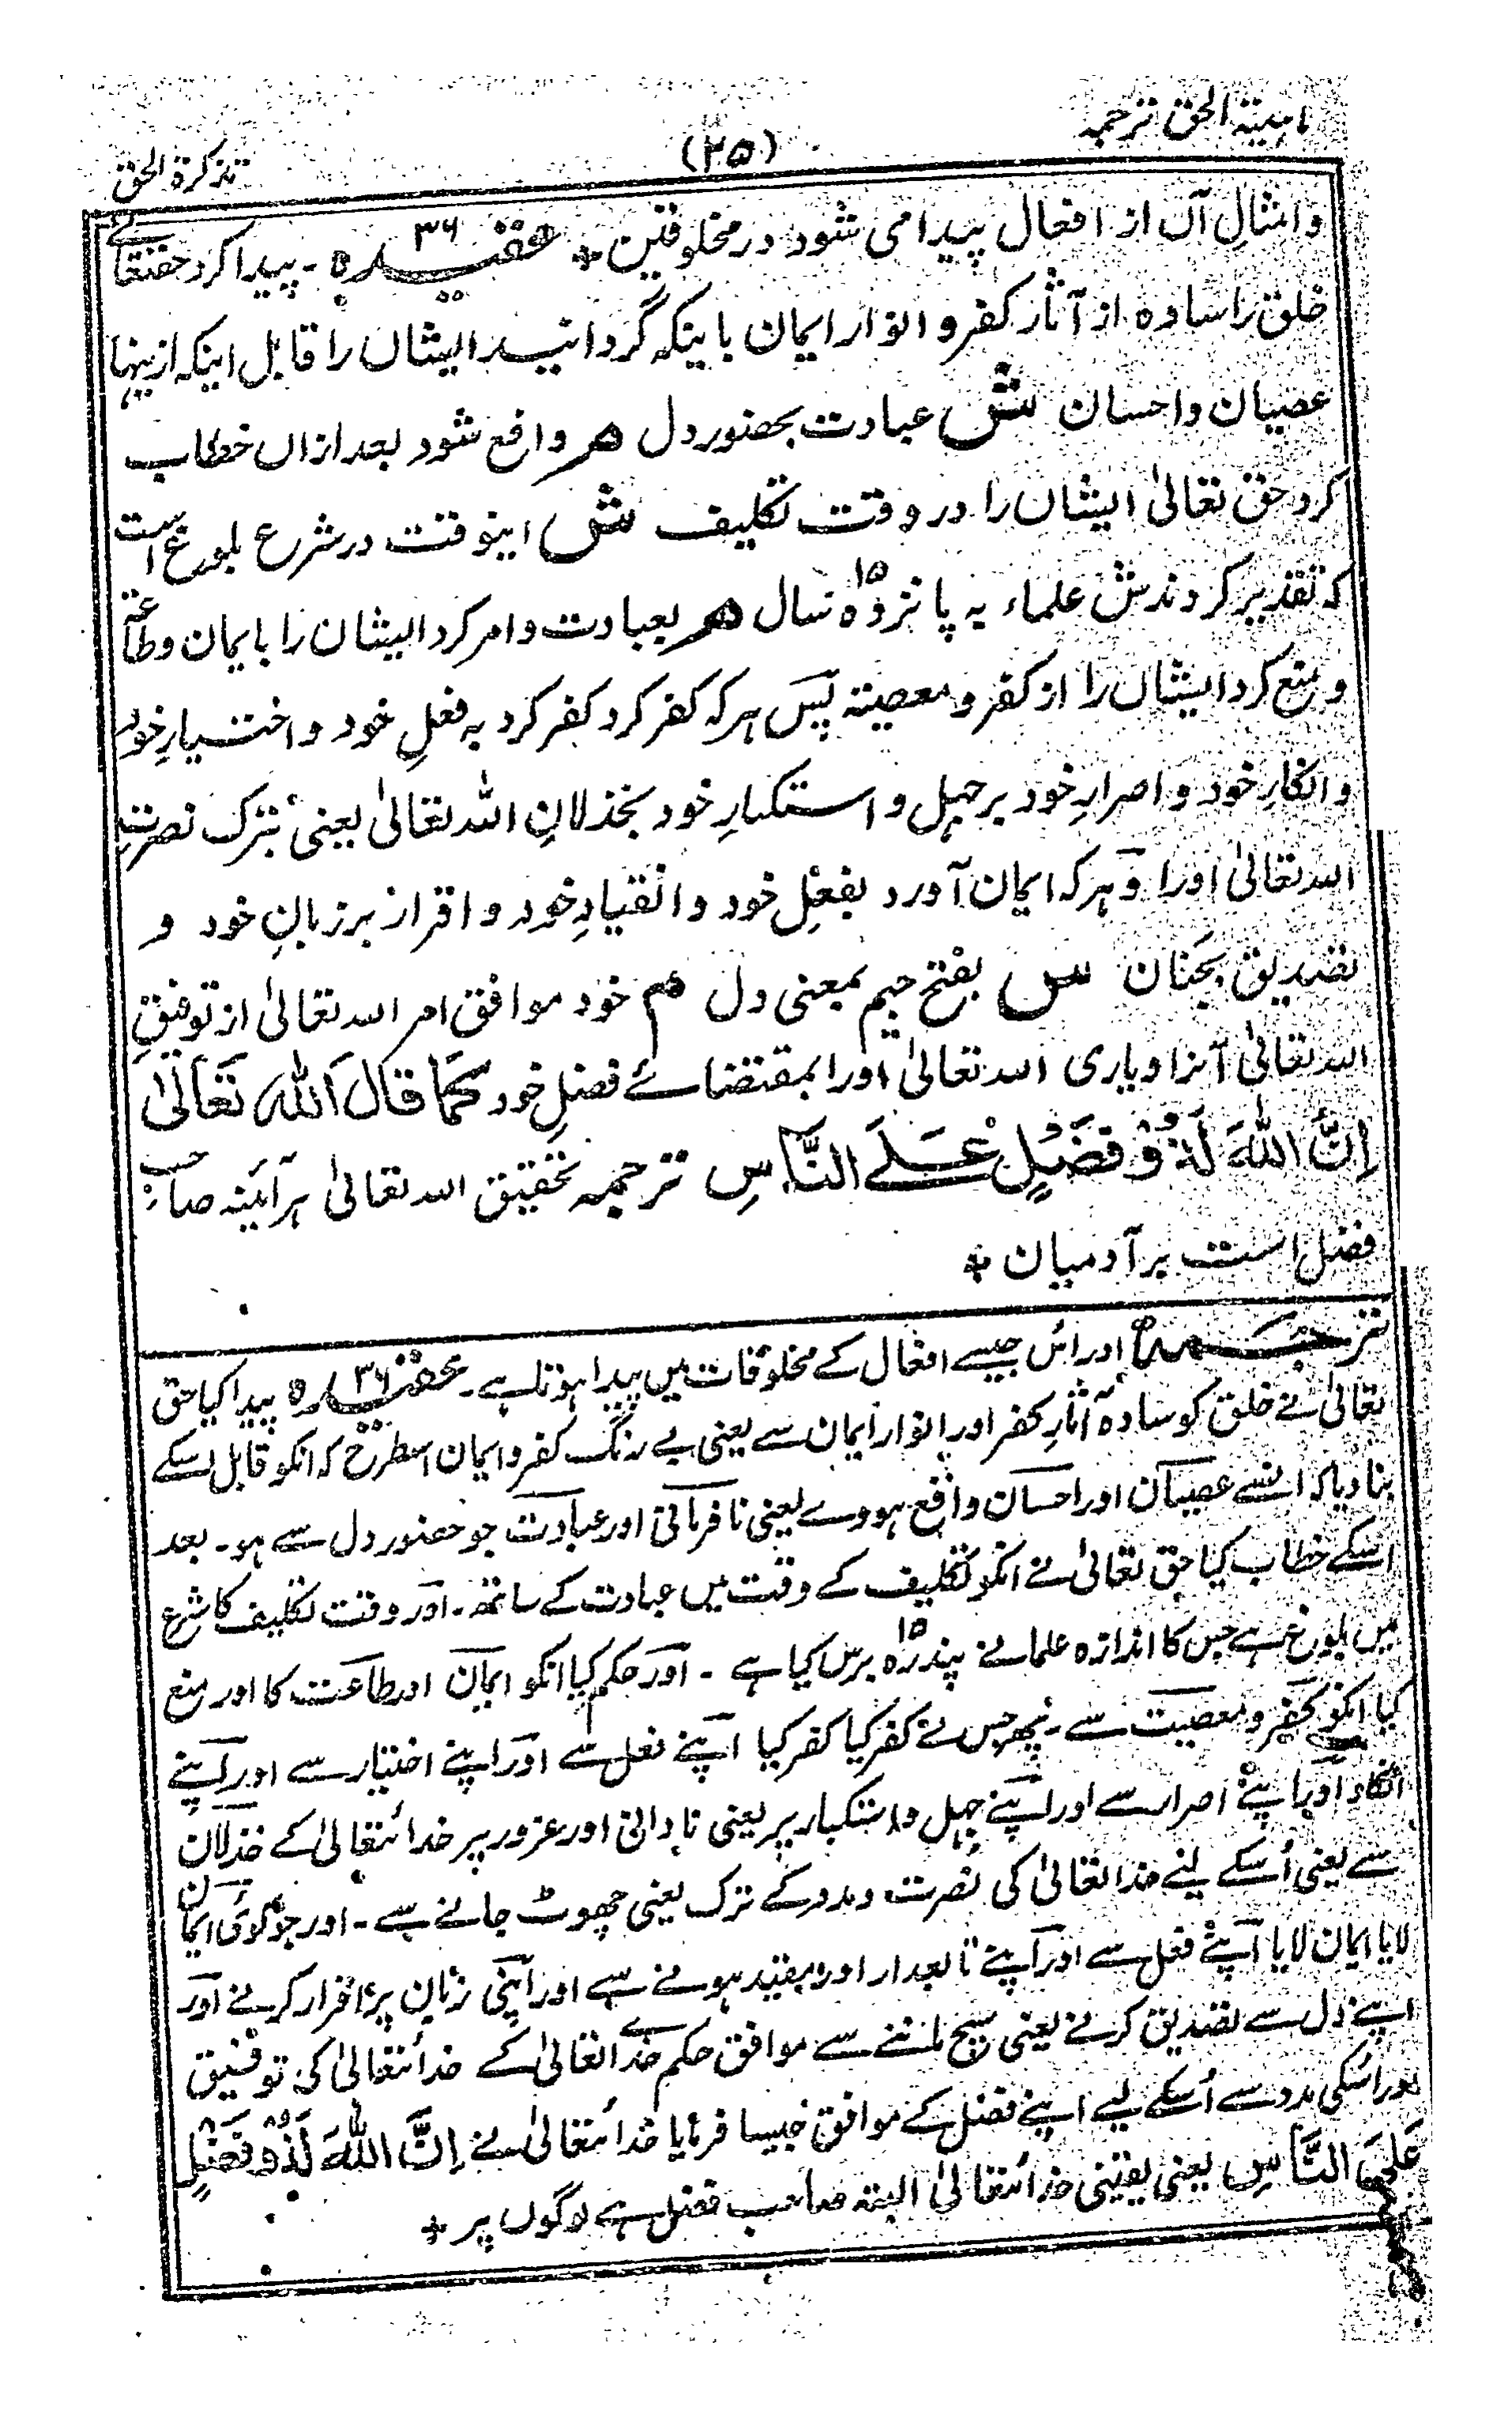 ماہیۃ الحق ترجمہ
(۲۵)
تذکرۃ الحق
وامثالِ آن از افعال پیدا می شود در مخلوقین ٭ عقیدہ ۳۶ ۔ پیدا کرد حقتعالےٰ
خلق را سادہ از آثار کفر و انوار ایمان باینکہ گردانید ایشاں را قابل اینکہ ازینہا
عصیان و احسان ش عبادت بحضور دل ھم واقع شود بعد ازاں خطاب
کرد حق تعالیٰ ایشاں را در وقت تکلیف ش اینوقت در شرع بلوغ است
کہ تقدیر کردندش علماء بہ پانزدہ ۱۵ سال ھم بعبادت و امر کرد ایشان را بایمان و طاعۃ
و منع کرد ایشاں را از کفر و معصیتہ پس ہر کہ کفر کرد کفر کرد بہ فعلِ خود و اختیارِ خود
و انکارِ خود و اصرارِ خود بر جہل و استکبارِ خود بخذلانِ اللہ تعالیٰ یعنی بترک نصرتِ
اللہ تعالیٰ اورا و ہر کہ ایمان آورد بفعلِ خود و انقیادِ خود و اقرار بر زبانِ خود و
تصدیق بجَنان ش بفتح جیم بمعنی دل ھم خود موافق امر اللہ تعالیٰ از توفیقِ
اللہ تعالیٰ آنرا و یاری اللہ تعالیٰ اورا بمقتضائے فضلِ خود کَمَا قَالَ اللہُ تَعَالیٰ
اِنَّ اللہَ لَذُوْ فَضْلٍ عَلَے النَّاسِ ترجمہ تحقیق اللہ تعالیٰ ہر آئینہ صاحب
فضل است بر آدمیان ٭
ترجمہ اور اُس جیسے افعال کے مخلوقات میں پیدا ہوتا ہے۔ عقیدہ ۳۶ پیدا کیا حق
تعالیٰ نے خلق کو سادہ آثارِ کفر اور انوار ایمان سے یعنی بے رنگ کفر و ایمان اسطرح کہ انکو قابل اسکے
بنا دیا کہ انسے عصیان اور احسان واقع ہووے یعنی نافرمانی اور عبادت جو حضور دل سے ہو۔ بعد
اسکے خطاب کیا حق تعالیٰ نے انکو تکلیف کے وقت میں عبادت کے ساتھ۔ اور وقت تکلیف کا شرع
میں بلوغ ہے جس کا اندازہ علما نے پندرہ ۱۵ برس کیا ہے ۔ اور حکم کیا انکو ایمان اور طاعت کا اور منع
کیا انکو کفر و معصیت سے۔ پھر جس نے کفر کیا کفر کیا اپنے فعل سے اور اپنے اختیار سے اور اپنے
انکار اور اپنے اصرار سے اور اپنے جہل و استکبار پر یعنی نادانی اور غرور پر خدائتعالیٰ کے خذلان
سے یعنی اُسکے لیئے خدا تعالیٰ کی نصرت و مدد کے ترک یعنی چھوٹ جانے سے ۔ اور جو کوئی ایمان
لایا ایمان لایا اپنے فعل سے اور اپنے تابعدار اور مقید ہونے سے اور اپنی زبان پر اقرار کرنے اور
اپنے دل سے تصدیق کرنے یعنی سچ ماننے سے موافق حکم خدا تعالیٰ کے خدائتعالیٰ کی توفیق
اور اسکی مدد سے اُسکے لیے اپنے فضل کے موافق جیسا فرمایا خدائتعالیٰ نے اِنَّ اللہَ لَذُوْ فَضْلٍ
عَلَی النَّاسِ یعنی یقینی خدائتعالیٰ البتہ صاحب فضل ہے لوگوں پر ٭